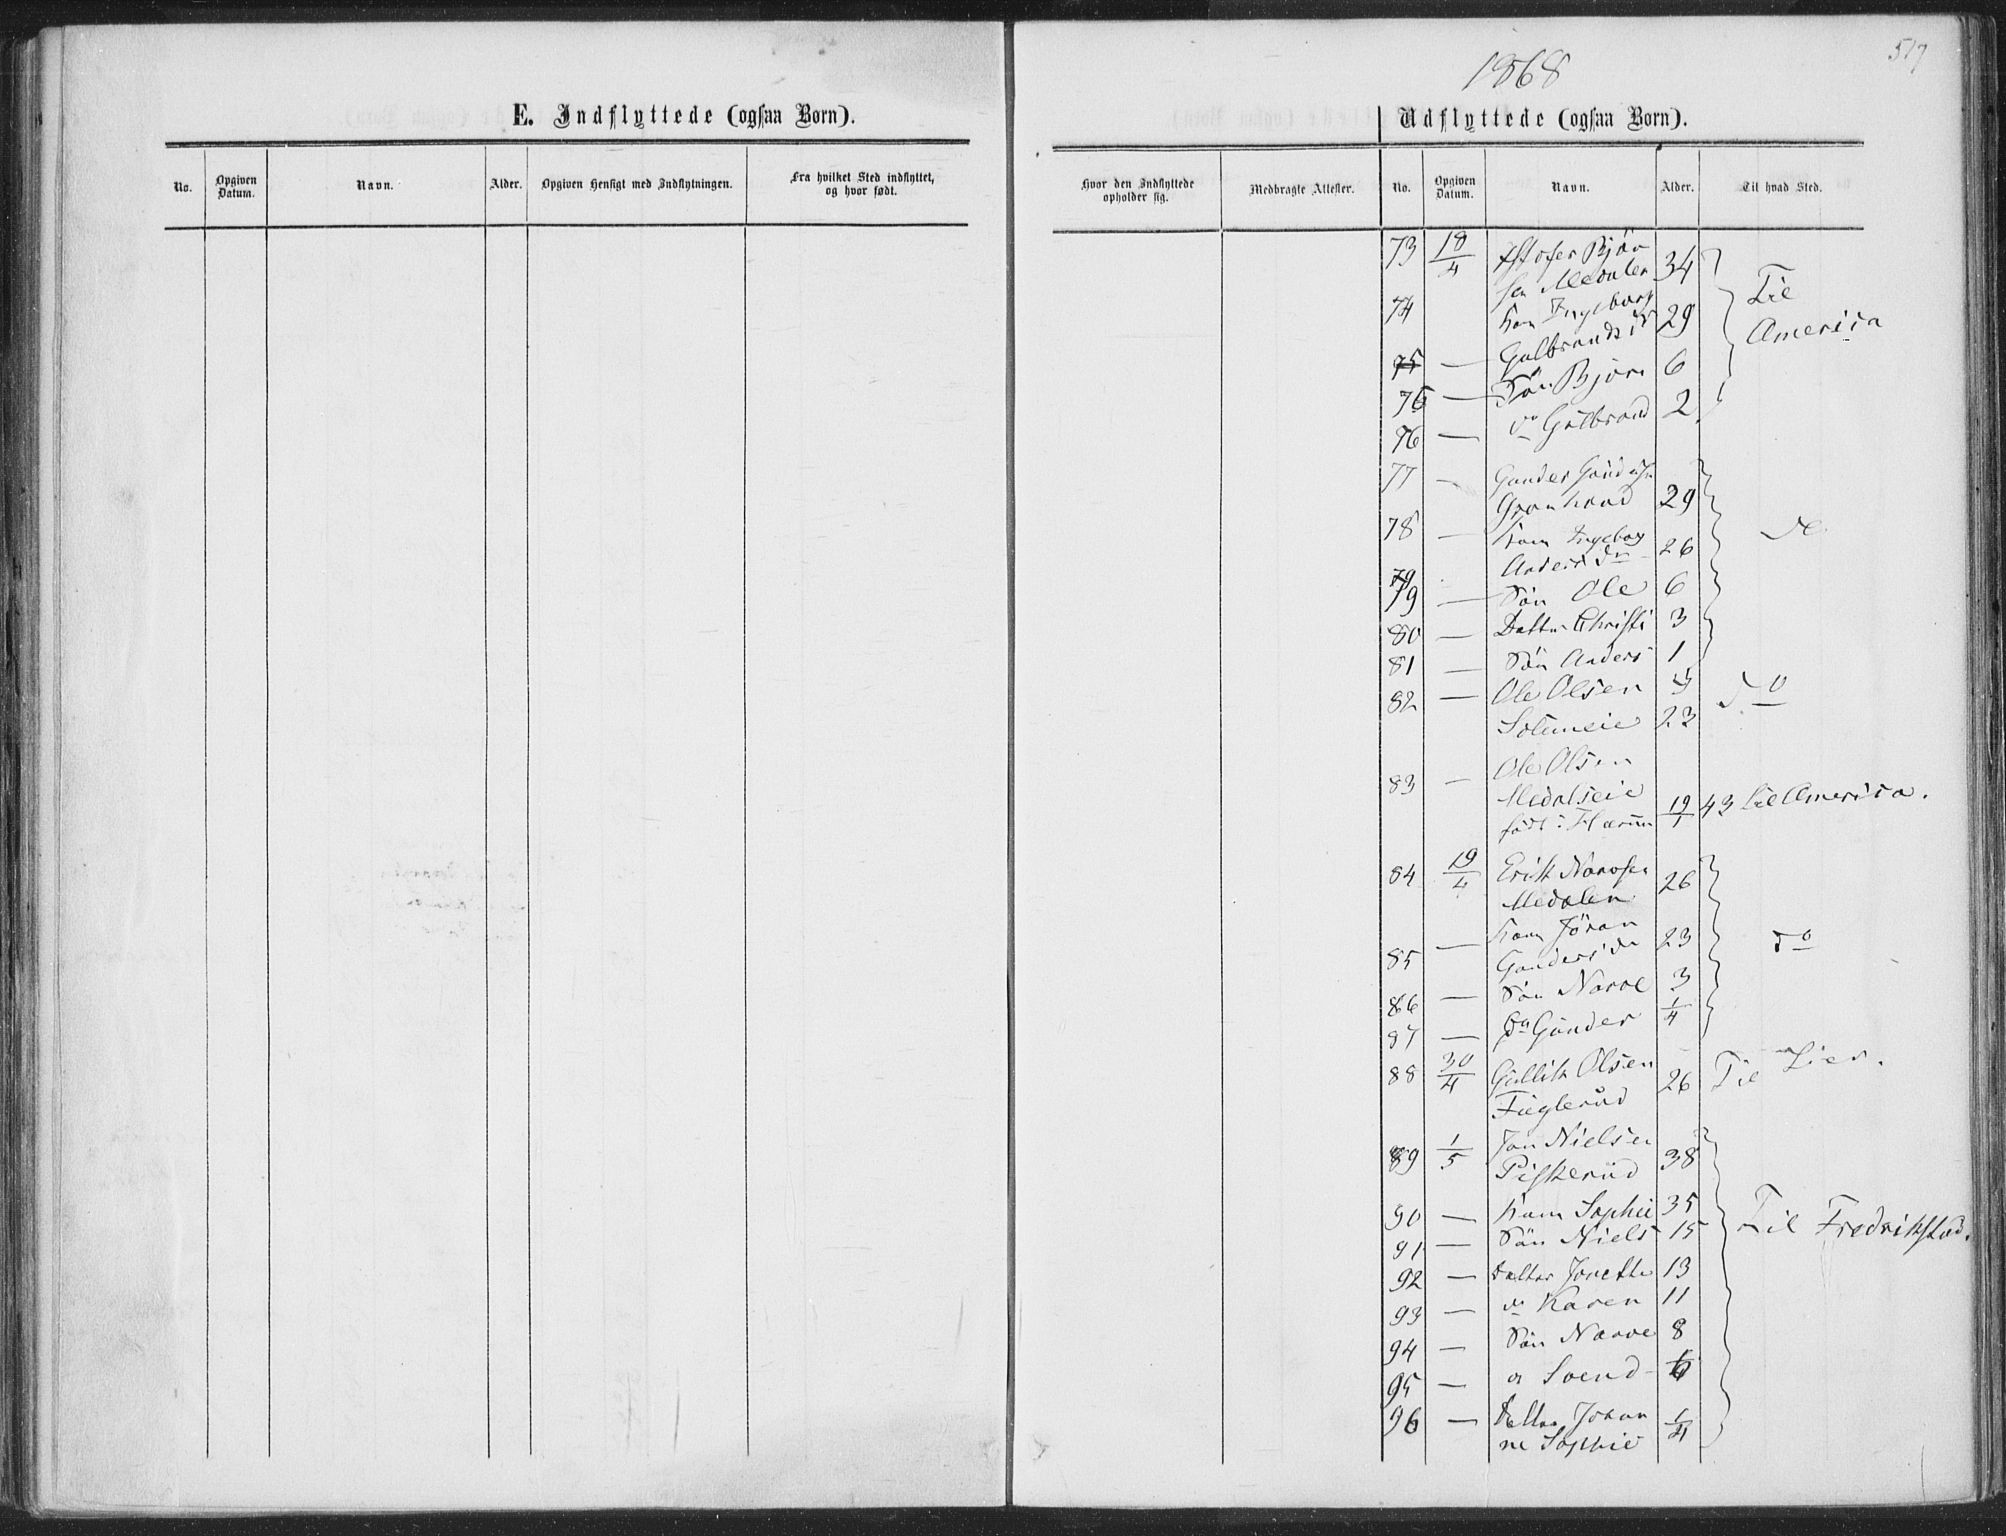 517
1868
E. Indflyttede (ogsaa Børn).
Udflyttede (ogsaa Børn).
No. Opgiven Datum. Navn. Alder. Opgiven Hensigt med Indflytningen. Fra hvilket Sted indflyttet, og hvor født.
Hvor den Indflyttede opholder sig. Medbragte Attester. No. Opgiven Datum. Navn. Alder. Til hvad Sted.
73 18/4 Bjørn
sen Medalen 34
74 Kon Ingeborg
Gulbrandsdr 29
Til
America
75 — Søn Bjørn 6
76 —
76 — do Gulbrand 2
77 — Gunder
29
78 — Kone Ingeborg
Andersdr 26
79
79 — Søn Ole 6
80 — Datter Christi 3
81 — Søn Anders 1
82 — Ole Olsen
Solumeie 23 do
83 — Ole Olsen
Medalseie
født i 19/1 43 til America.
84 19/4 Erik Narvesen
Medalen 26
85 — Kone Jöran
Gundersdr 23 do
86 — Søn Narve 3
87 — do Gunder 1/4
88 30/4 Gullik Olsen
Fuglerud 26 Til Lier.
89 1/5 Jon Nielsen
Piskerud 38
90 — Kone Sophie 35
91 — Søn Niels 15
Til Fredrikstad.
92 — Datter Jonette 13
93 — do Karen 11
94 — Søn Narve 8
95 — do Svend 6
96 — Datter Johan
ne Sophie 1/4